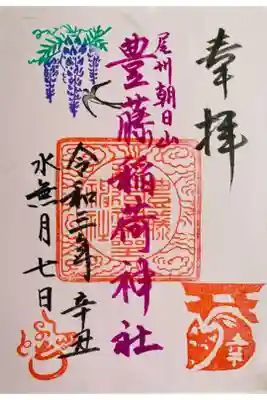 奉拝
尾州朝日山
豊藤稲荷神社
令和三年 辛丑
水無月七日